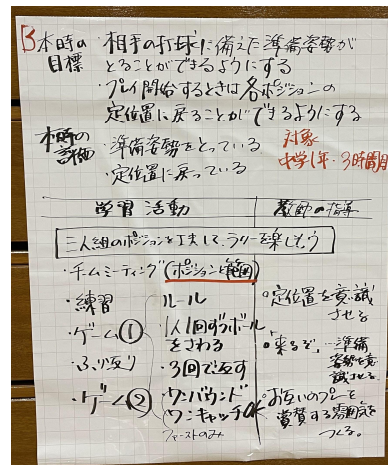 B 本時の目標
・相手の打球に備えた準備姿勢が
とることができるようにする
・プレイ開始するときは各ポジションの
定位置に戻ることができるようにする
本時の評価
・準備姿勢をとっている
・定位置に戻っている
対象
中学1年・3時間目
学習活動
教師の指導
三人組のポジションを工夫して、ラリーを楽しもう
・チームミーティング(ポジションと範囲)
・練習
・ゲーム①
・ふり返り
・ゲーム②
ルール
・1人1回ずつボール
をさわる
・3回で返す
・ワンバウンド
ワンキャッチOK
ファーストのみ
○定位置を意識
させる
○来るぞ、…準備
姿勢を意
識させる
○お互いのプレーを
賞賛する雰囲気を
つくる。